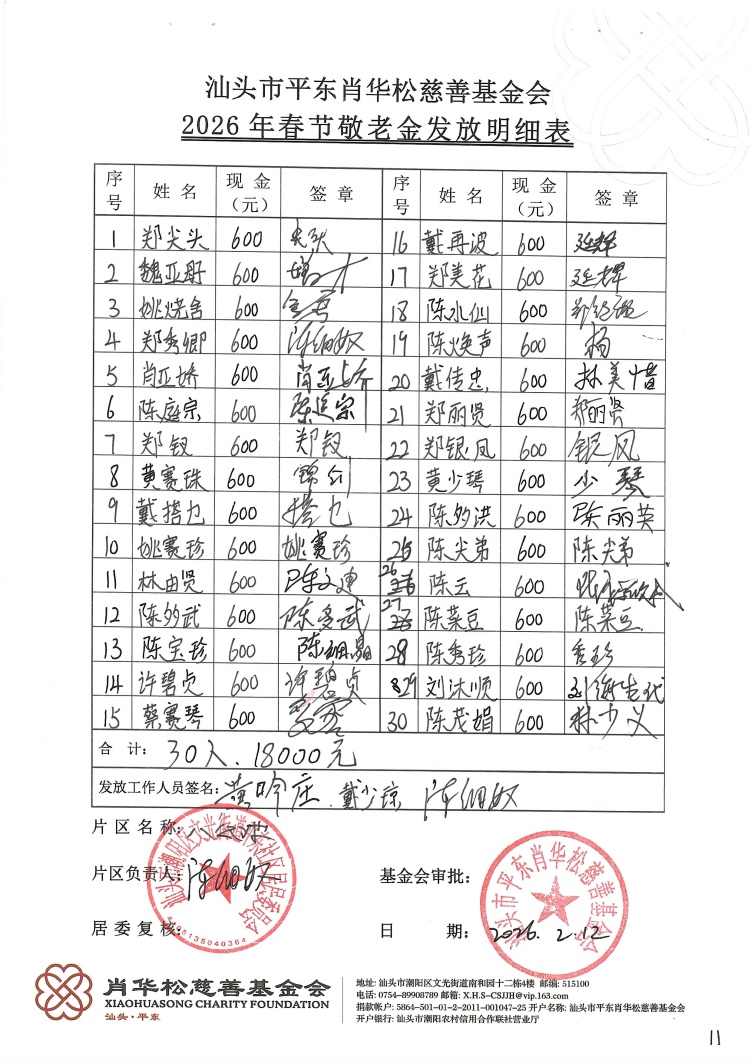 汕头市平东肖华松慈善基金会
2026年春节敬老金发放明细表
序号 姓名 现金（元） 签章 序号 姓名 现金（元） 签章
1 郑尖头 600 尖头 16 戴再波 600 延辉
2 魏亚 600 17 郑美花 600 延辉
3 姚烧舍 600 18 陈水仙 600
4 郑秀卿 600 陈细奴 19 陈焕声 600 杨
5 肖亚娇 600 肖亚娇 20 戴传忠 600 林美惜
6 陈庭宗 600 陈庭宗 21 郑丽贤 600 郑丽贤
7 郑钗 600 郑钗 22 郑银凤 600 银凤
8 黄赛珠 600 锦剑 23 黄少琴 600 少琴
9 戴搭乜 600 搭乜 24 陈妙洪 600 陈丽英
10 姚赛珍 600 姚赛珍 25 陈尖弟 600 陈尖弟
11 林由贤 600 陈文 26 陈云 600
12 陈妙武 600 陈多武 27 陈菜豆 600 陈菜豆
13 陈宝珍 600 陈 28 陈秀珍 600 秀珍
14 许碧贞 600 许碧贞 29 刘沐顺 600
15 蔡赛琴 600 30 陈茂娟 600 林少义
合计：30人、18000元
发放工作人员签名：黄吟庄、戴少琼 陈细奴
片区名称：
片区负责人：陈细奴 基金会审批：
居委复核： 日期：2026.2.12
汕头市潮阳区文光街道
5135040364
汕头市平东肖华松慈善基金会
肖华松慈善基金会
XIAOHUASONG CHARITY FOUNDATION
汕头·平东
地址: 汕头市潮阳区文光街道南和园十二栋4楼 邮编: 515100
电话: 0754-89908789 邮箱: X.H.S-CSJJH@vip.163.com
捐款帐户: 5864-501-01-2-2011-001047-25 开户名称: 汕头市平东肖华松慈善基金会
开户银行: 汕头市潮阳农村信用合作联社营业厅
11